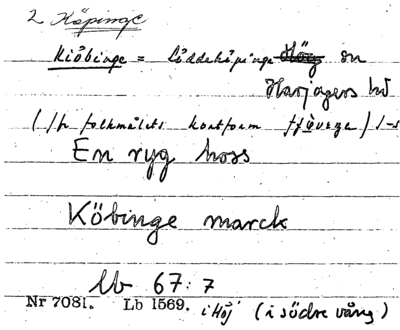 2 Köpinge
Kiöbinge = Löddeköpinge Hög sn
Harjagers hd
(/fr folkmålets kortform tjövinge) /-s
En ryg hoss
Köbinge marck
Lb 67:7
Nr 7081. Lb 1569. i Höj (i södre vång)